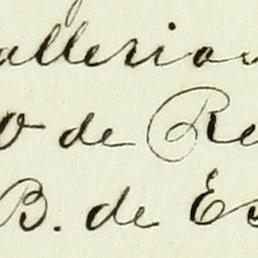 alleria
o de Re
B. de Es